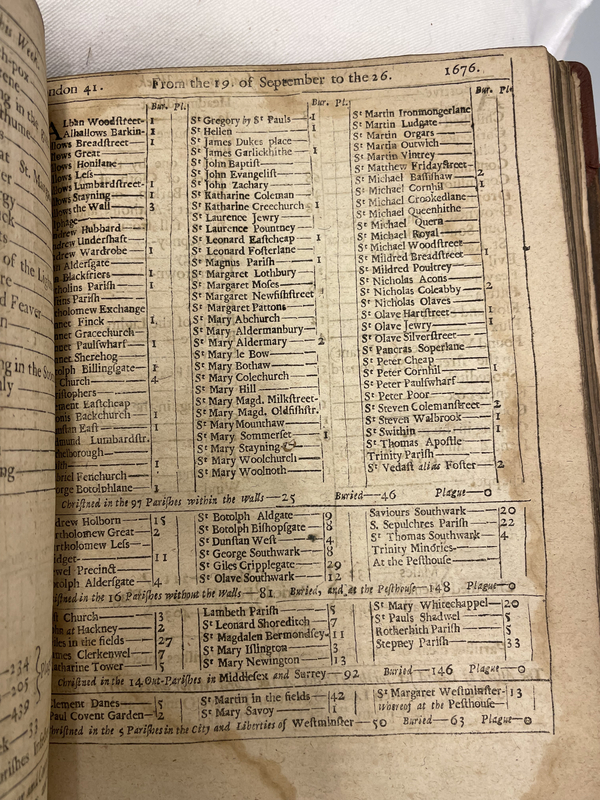 ndon 41. From the 19. of September to the 26. 1676.
Bur. Pl.
Lban Woodſtreet- 1
Alhallows Barkin- 1
llows Breadſtreet- 1
llows Great
llows Honilane
llows Leſs
llows Lumbardſtreet- 1
llows Stayning 1
llows the Wall 3
lphage
drew Hubbard
drew Underſhaft
drew Wardrobe 1
n Alderſgate
n Blackfriers 1
holins Pariſh 1
ſtins Pariſh
holomew Exchange
net Finck 1
net Gracechurch
net Paulſwharf 1
net Sherehog
olph Billingſgate 1
Church 4
iſtophers
ment Eaſtcheap
onis Backchurch 1
nſtan Eaſt 1
mund Lumbardſtr.
helborough
1
briel Fenchurch
orge Botolphlane 1
Bur. Pl.
Sᵗ Gregory by Sᵗ Pauls 1
Sᵗ Hellen 1
Sᵗ James Dukes place
Sᵗ James Garlickhithe 1
Sᵗ John Baptiſt
Sᵗ John Evangeliſt
Sᵗ John Zachary
Sᵗ Katharine Coleman
Sᵗ Katharine Creechurch 1
Sᵗ Laurence Jewry
Sᵗ Laurence Pountney
Sᵗ Leonard Eaſtcheap 1
Sᵗ Leonard Foſterlane
Sᵗ Magnus Pariſh 1
Sᵗ Margaret Lothbury
Sᵗ Margaret Moſes
Sᵗ Margaret Newfiſhſtreet
Sᵗ Margaret Pattons
Sᵗ Mary Abchurch
Sᵗ Mary Aldermanbury
Sᵗ Mary Aldermary 2
Sᵗ Mary le Bow
Sᵗ Mary Bothaw
Sᵗ Mary Colechurch
Sᵗ Mary Hill
Sᵗ Mary Magd. Milkſtreet-
Sᵗ Mary Magd. Oldfiſhſtr.
Sᵗ Mary Mounthaw
Sᵗ Mary Somerſet 1
Sᵗ Mary Stayning
Sᵗ Mary Woolchurch
Sᵗ Mary Woolnoth
Bur. Pl.
Sᵗ Martin Ironmongerlane
Sᵗ Martin Ludgate
Sᵗ Martin Orgars
Sᵗ Martin Outwich
Sᵗ Martin Vintrey
Sᵗ Matthew Fridayſtreet
Sᵗ Michael Baſſiſhaw 2
Sᵗ Michael Cornhil 1
Sᵗ Michael Crookedlane
Sᵗ Michael Queenhithe
Sᵗ Michael Quern
Sᵗ Michael Royal
Sᵗ Michael Woodſtreet
Sᵗ Mildred Breadſtreet 1
Sᵗ Mildred Poultrey
Sᵗ Nicholas Acons
Sᵗ Nicholas Coleabby 2
Sᵗ Nicholas Olaves
Sᵗ Olave Hartſtreet 1
Sᵗ Olave Jewry 1
Sᵗ Olave Silverſtreet
Sᵗ Pancras Soperlane
Sᵗ Peter Cheap
Sᵗ Peter Cornhil 1
Sᵗ Peter Paulſwharf
Sᵗ Peter Poor
Sᵗ Steven Colemanſtreet 2
Sᵗ Steven Walbrook 1
Sᵗ Swithin 1
Sᵗ Thomas Apoſtle
Trinity Pariſh
Sᵗ Vedaſt alias Foſter 2
Chriſtned in the 97 Pariſhes within the Walls 25 Buried 46 Plague 0
drew Holborn 15
rtholomew Great 2
rtholomew Leſs
idget 11
wel Precinct
otolph Alderſgate 4
Sᵗ Botolph Aldgate 19
Sᵗ Botolph Biſhopſgate 8
Sᵗ Dunſtan Weſt 4
Sᵗ George Southwark 8
Sᵗ Giles Cripplegate 29
Sᵗ Olave Southwark 12
Saviours Southwark 20
S. Sepulchres Pariſh 22
Sᵗ Thomas Southwark 4
Trinity Minories
At the Peſthouse
ſtned in the 16 Pariſhes without the Walls 81 Buried, and at the Peſthouse 148 Plague 0
Church 3
at Hackney 2
iles in the fields 27
mes Clerkenwel 7
atharine Tower 5
Lambeth Pariſh 5
Sᵗ Leonard Shoreditch 7
Sᵗ Magdalen Bermondſey 11
Sᵗ Mary Iſlington 3
Sᵗ Mary Newington 13
Sᵗ Mary Whitechappel 20
Sᵗ Pauls Shadwel 5
Rotherhith Pariſh 5
Stepney Pariſh 33
Chriſtned in the 14 Out-Pariſhes in Middleſex and Surrey 92 Buried 146 Plague 0
lement Danes 5
Paul Covent Garden 2
Sᵗ Martin in the fields 42
Sᵗ Mary Savoy 1
Sᵗ Margaret Weſtminſter 13
Whereof at the Peſthouse
hriſtned in the 5 Pariſhes in the City and Liberties of Weſtminſter 50 Buried 63 Plague 0